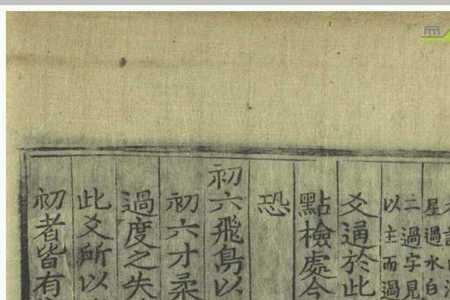 星過水白
二過字見
以主而過
爻通於此
點檢處令
恐
初六飛鳥以
初六才柔
過度之失
此爻所以
初者皆有